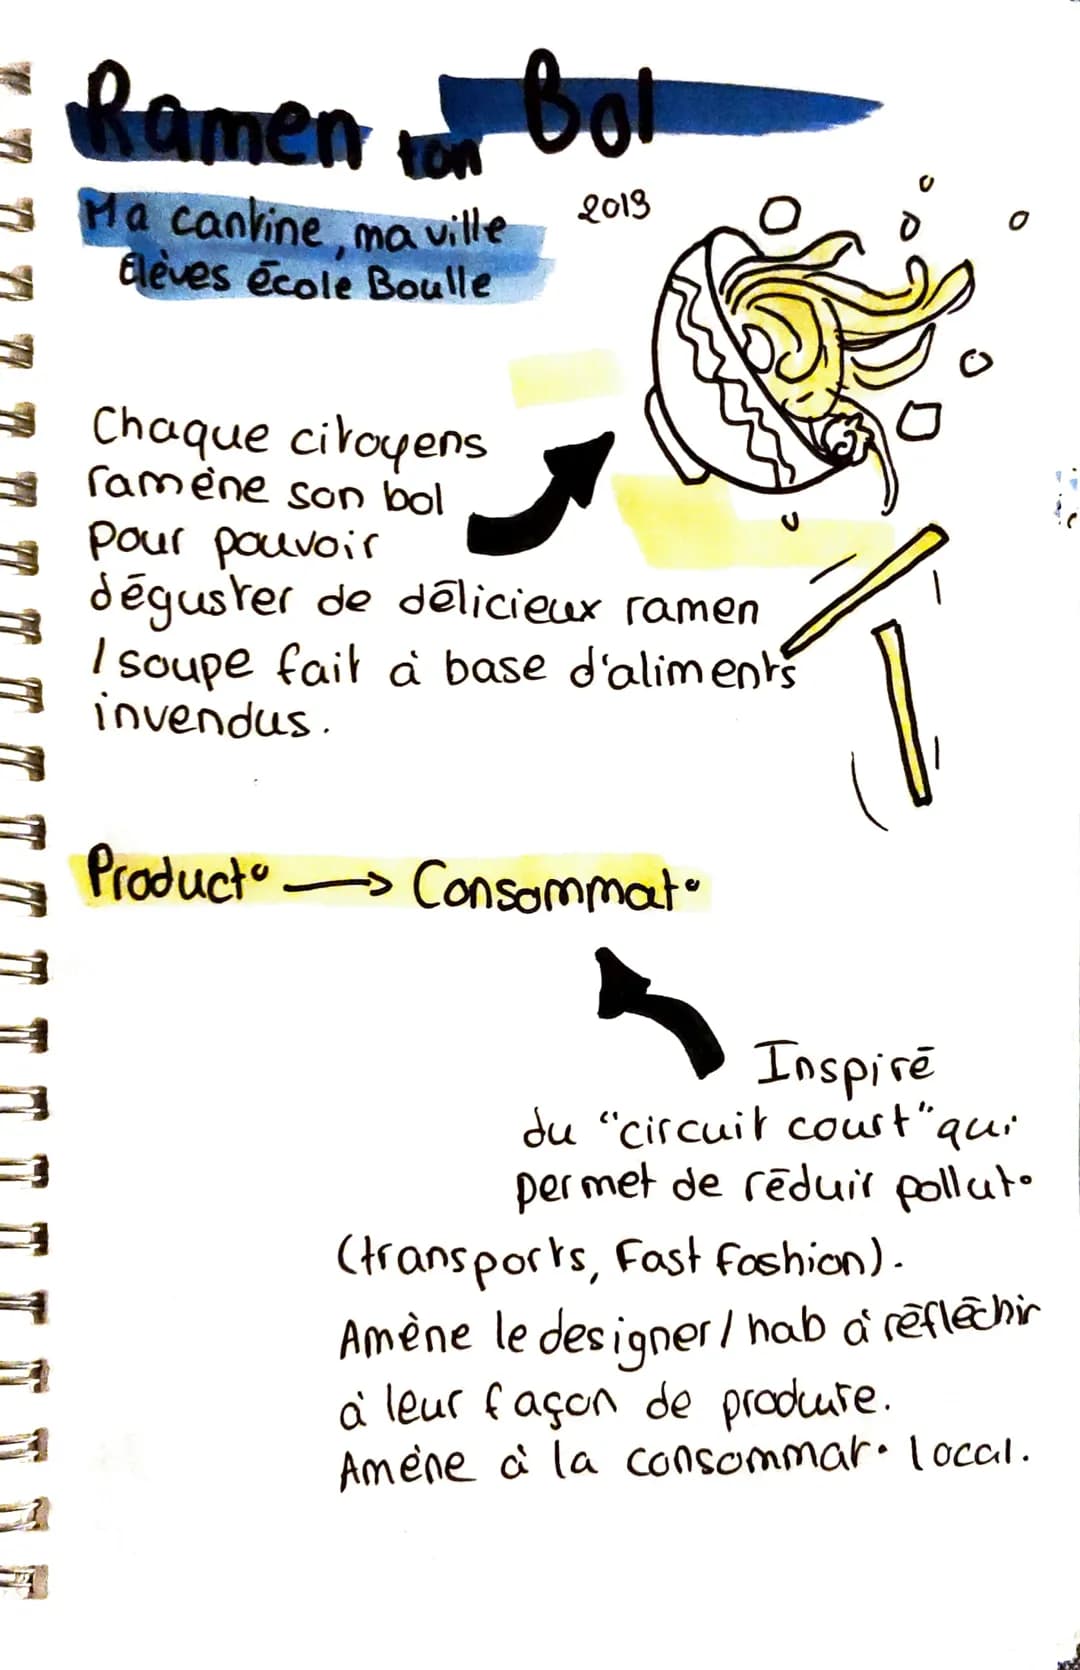 Ramen ton Bol
Ma cantine, ma ville
2019
Élèves école Boulle
Chaque citoyens
ramène son bol
pour pouvoir
déguster de délicieux ramen
/ soupe fait à base d'aliments
invendus.
Product° → Consommat°
Inspiré
du "circuit court" qui
permet de réduir pollut°
(transports, Fast fashion).
Amène le designer / hab à réfléchir
à leur façon de produire.
Amène à la consommat° local.